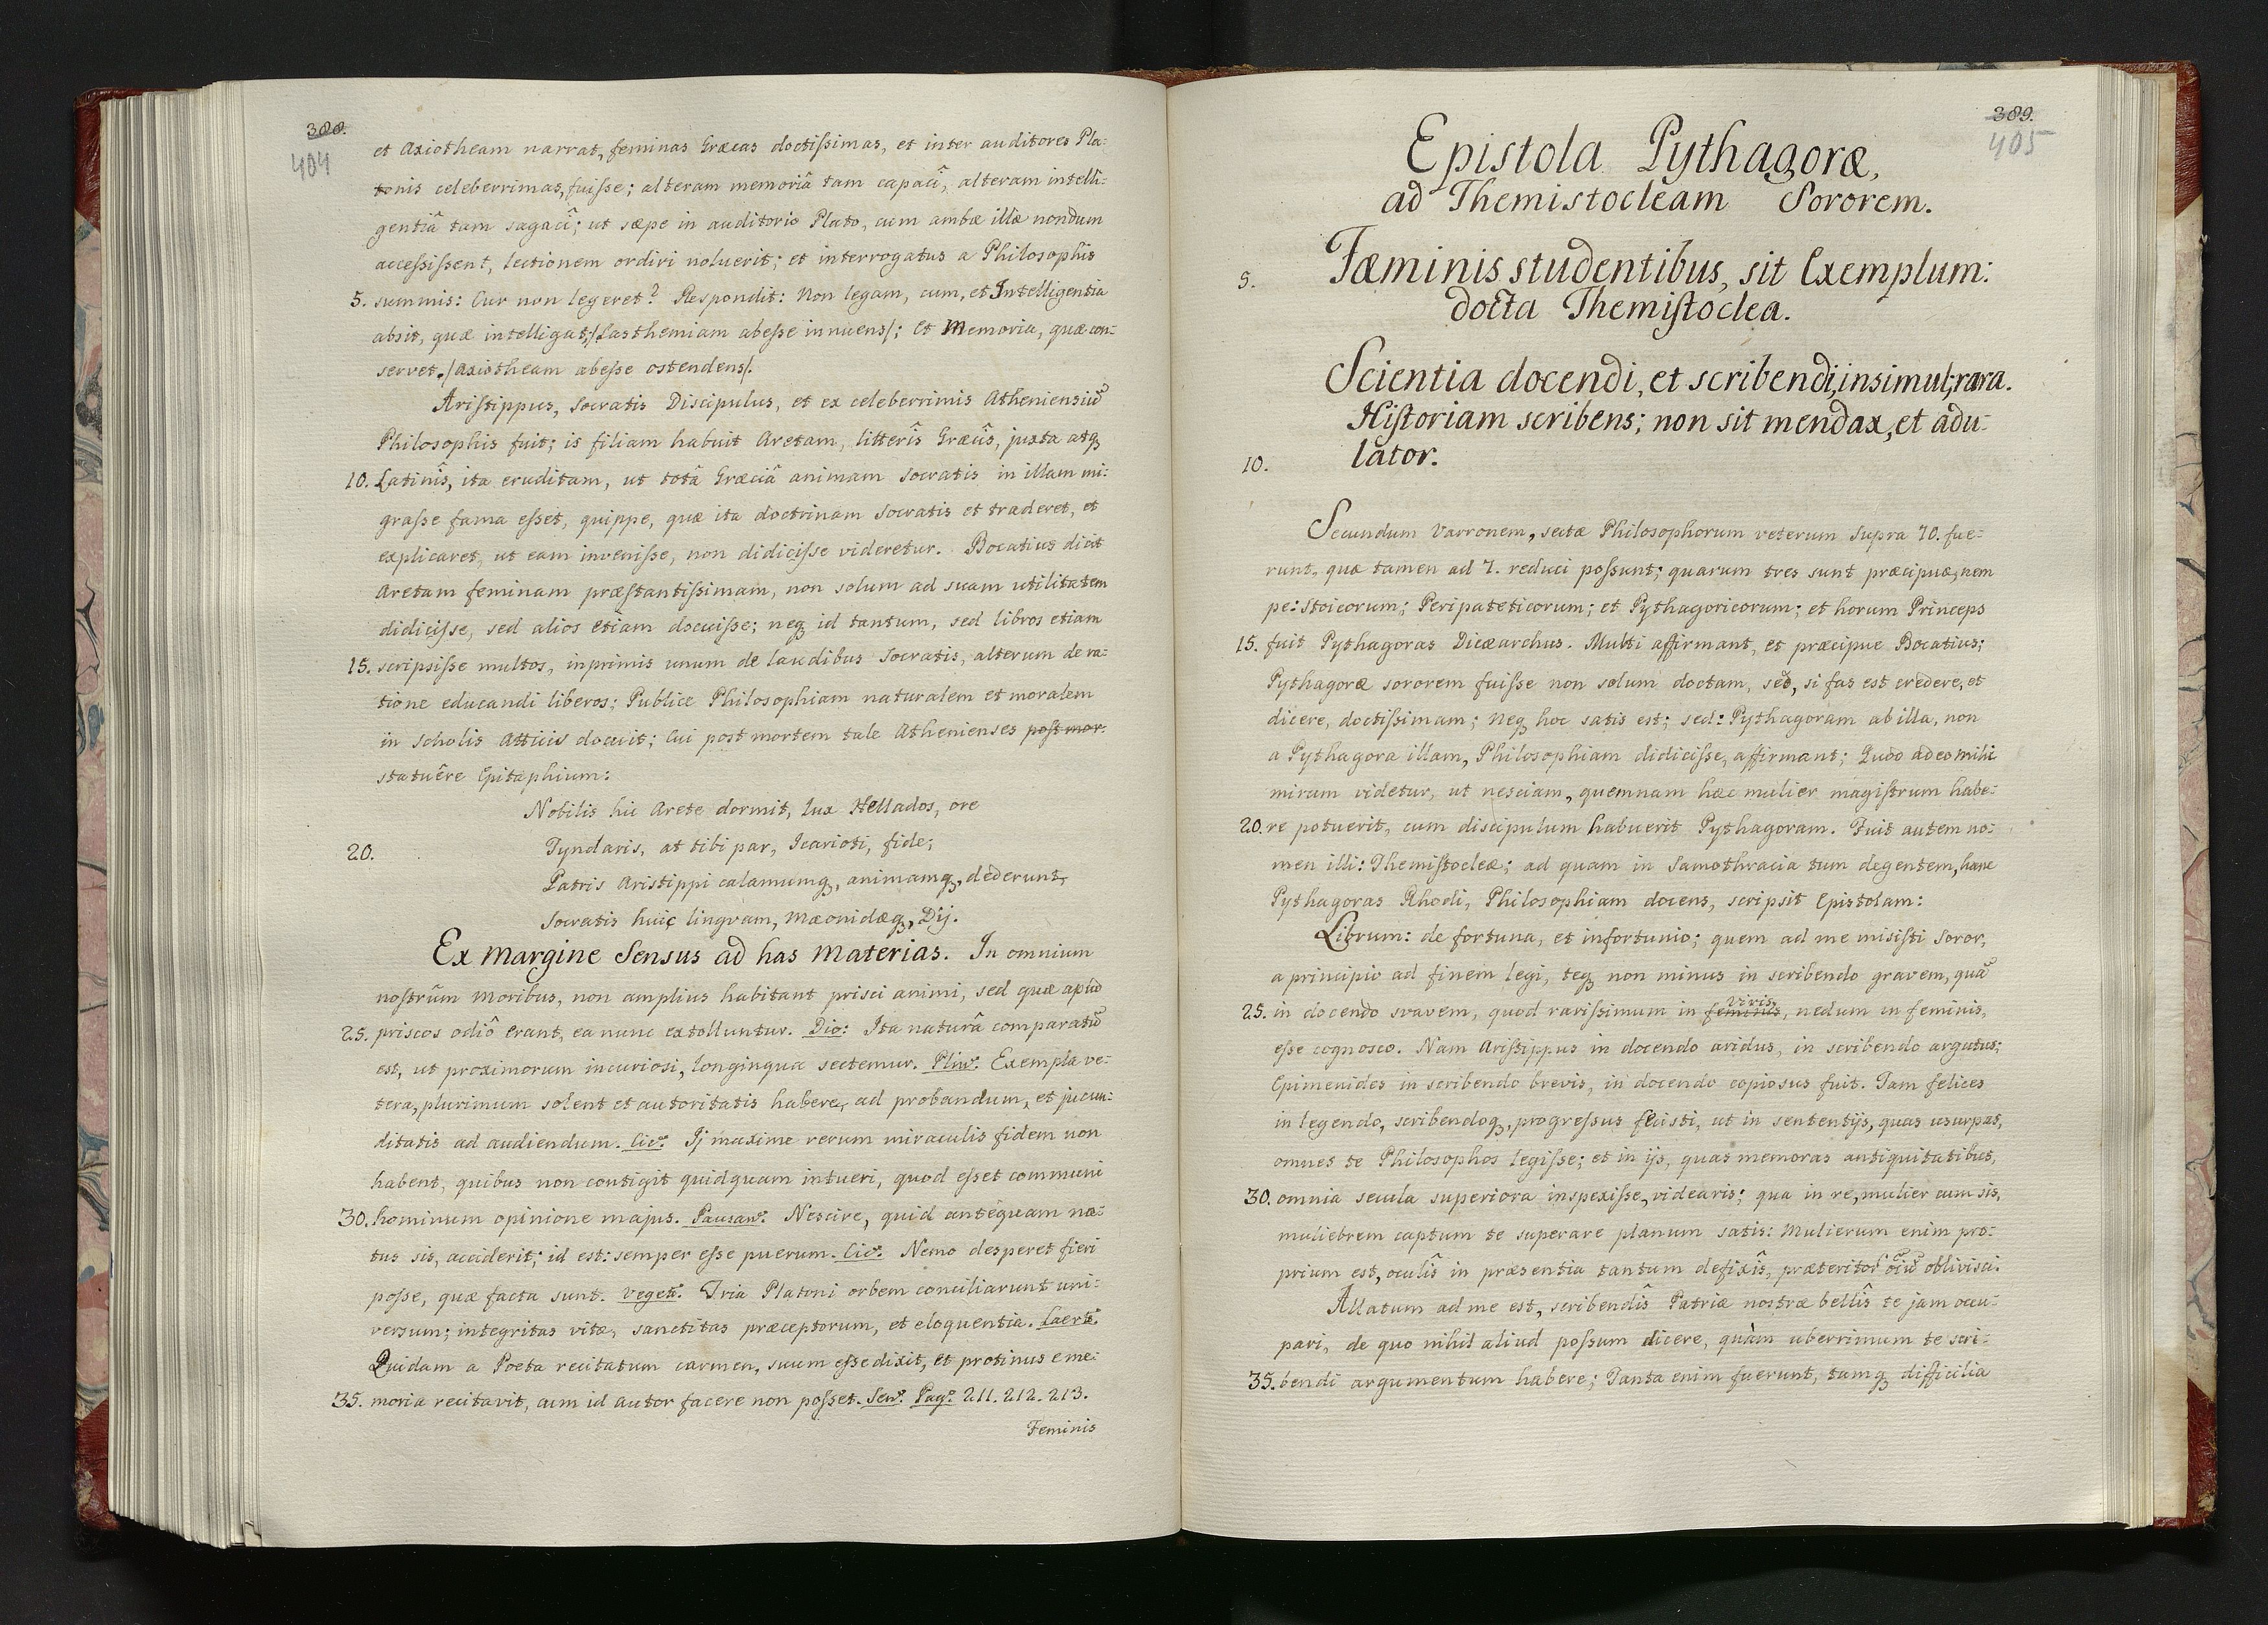 388.
404
et Axiotheam narrat, feminas Græcas doctiſsimas, et inter auditores Pla:
tonis celeberrimas, fuiſse; alteram memoriâ tam capaci, alteram intelli:
gentiâ tam sagaci; ut sæpe in auditorio Plato, cum ambæ illæ nondum
acceſsiſsent, lectionem ordiri noluerit; et interrogatus a Philosophis
5. summis: Cur non legeret? Respondit: Non legam, cum, et Intelligentia
absit, quæ intelligat;/Lasthemiam abeſse innuens/; Et Memoria, quæ con:
servet./Axiotheam abeſse ostendens/.
Ariſtippus, Socratis Discipulus, et ex celeberrimis Atheniensiū
Philosophis fuit; is filiam habuit Aretam, litterîs Græcîs, juxta atq
10. Latinîs, ita eruditam, ut totâ Græciâ animam Socratis in illam mi:
graſse fama eſset, quippe, quæ ita doctrinam Socratis et traderet, et
explicaret, ut eam inveniſse, non didiciſse videretur. Bocatius dicit
Aretam feminam præſtantiſsimam, non solum ad suam utilitatem
didiciſse, sed alios etiam docuiſse; neq id tantum, sed libros etiam
15. scripsiſse multos, inprimis unum de laudibus Socratis, alterum de ra:
tione educandi liberos; Publice Philosophiam naturalem et moralem
in Scholis Atticis docuit; Cui post mortem tale Athenienses post mor:
statuêre Epitaphium:
Nobilis hic Arete dormit, lux Hellados, ore
20. Tyndaris, at tibi par, Icarioti, fide;
Patris Aristippi calamumq, animamq, dederunt,
Socratis huic lingvam, Mæonidæq, Dij.
Ex Margine Sensus ad has Materias. In omnium
noſtrûm Moribus, non amplius habitant prisci animi, sed quæ apud
25. priscos odiô erant, ea nunc extolluntur. Dio: Ita naturâ comparatū
est, ut proximorum incuriosi, longinqua sectemur. Plin: Exempla ve:
tera, plurimum solent et autoritatis habere, ad probandum, et jucun:
ditatis ad audiendum. Cic: Ij maxime rerum miraculis fidem non
habent, quibus non contigit quidquam intueri, quod eſset communi
30. hominum opinione majus. Pausan: Nescire, quid antequam na:
tus sis, acciderit; id est: semper eſse puerum. Cic: Nemo desperet fieri
poſse, quæ facta sunt. Veget: Tria Platoni orbem conciliarunt uni:
versum; integritas vitæ, sanctitas præceptorum, et eloquentia. Laert:
Quidam a Poeta recitatum carmen, suum eſse dixit, et protinus e me:
35. moria recitavit, cum id autor facere non poſset. Sen: Pag: 211. 212. 213.
Feminis
389.
405
Epistola Pythagoræ,
ad Themistocleam Sororem.
5. Fæminis studentibus, sit Exemplum:
docta Themiſtoclea.
Scientia docendi, et scribendi, insimul; rara.
Hiſtoriam scribens; non sit mendax, et adu:
10. lator.
Secundum Varronem, sectæ Philosophorum veterum supra 70. fue:
runt, quæ tamen ad 7. reduci poſsunt; quarum tres sunt præcipuæ, nem
pe: Stoicorum; Peripateticorum; et Pythagoricorum; et horum Princeps
15. fuit Pythagoras Dicæarchus. Multi affirmant, et præcipue Bocatius;
Pythagoræ sororem fuiſse non solum doctam, sed, si fas est credere, et
dicere, doctiſsimam; Neq hoc satis est; sed: Pythagoram ab illa, non
a Pythagora illam, Philosophiam didiciſse, affirmant; Quod adeo mihi
mirum videtur, ut nesciam, quemnam hæc mulier magiſtrum habe:
20. re potuerit, cum discipulum habuerit Pythagoram. Fuit autem no:
men illi: Themiſtocleæ; ad quam in Samothracia tum degentem, hanc
Pythagoras Rhodi, Philosophiam docens, scripsit Epistolam:
Librum: de fortuna, et infortunio; quem ad me misiſti Soror,
a principio ad finem legi, teq non minus in scribendo gravem, quā
25. in docendo svavem, quod rariſsimum in feminis viris, nedum in feminis,
eſse cognosco. Nam Ariſtippus in docendo aridus, in scribendo argutus;
Epimenides in scribendo brevis, in docendo copiosus fuit. Tam felices
in legendo, scribendoq, progreſsus feciſti, ut in sententijs, quas usurpas,
omnes te Philosophos legiſse; et in ijs, quas memoras antiquitatibus,
30. omnia secula superiora inspexiſse, videaris; qua in re, mulier cum sis,
muliebrem captum te superare planum satis: Mulierum enim pro:
prium est, oculîs in præsentia tantum defixîs, præteritorū oīū oblivisci.
Allatum ad me est, scribendîs Patriæ nostræ bellîs te jam occu:
pari, de quo nihil aliud poſsum dicere, quàm uberrimum te scri:
35. bendi argumentum habere; Tanta enim fuerunt, tamq difficilia